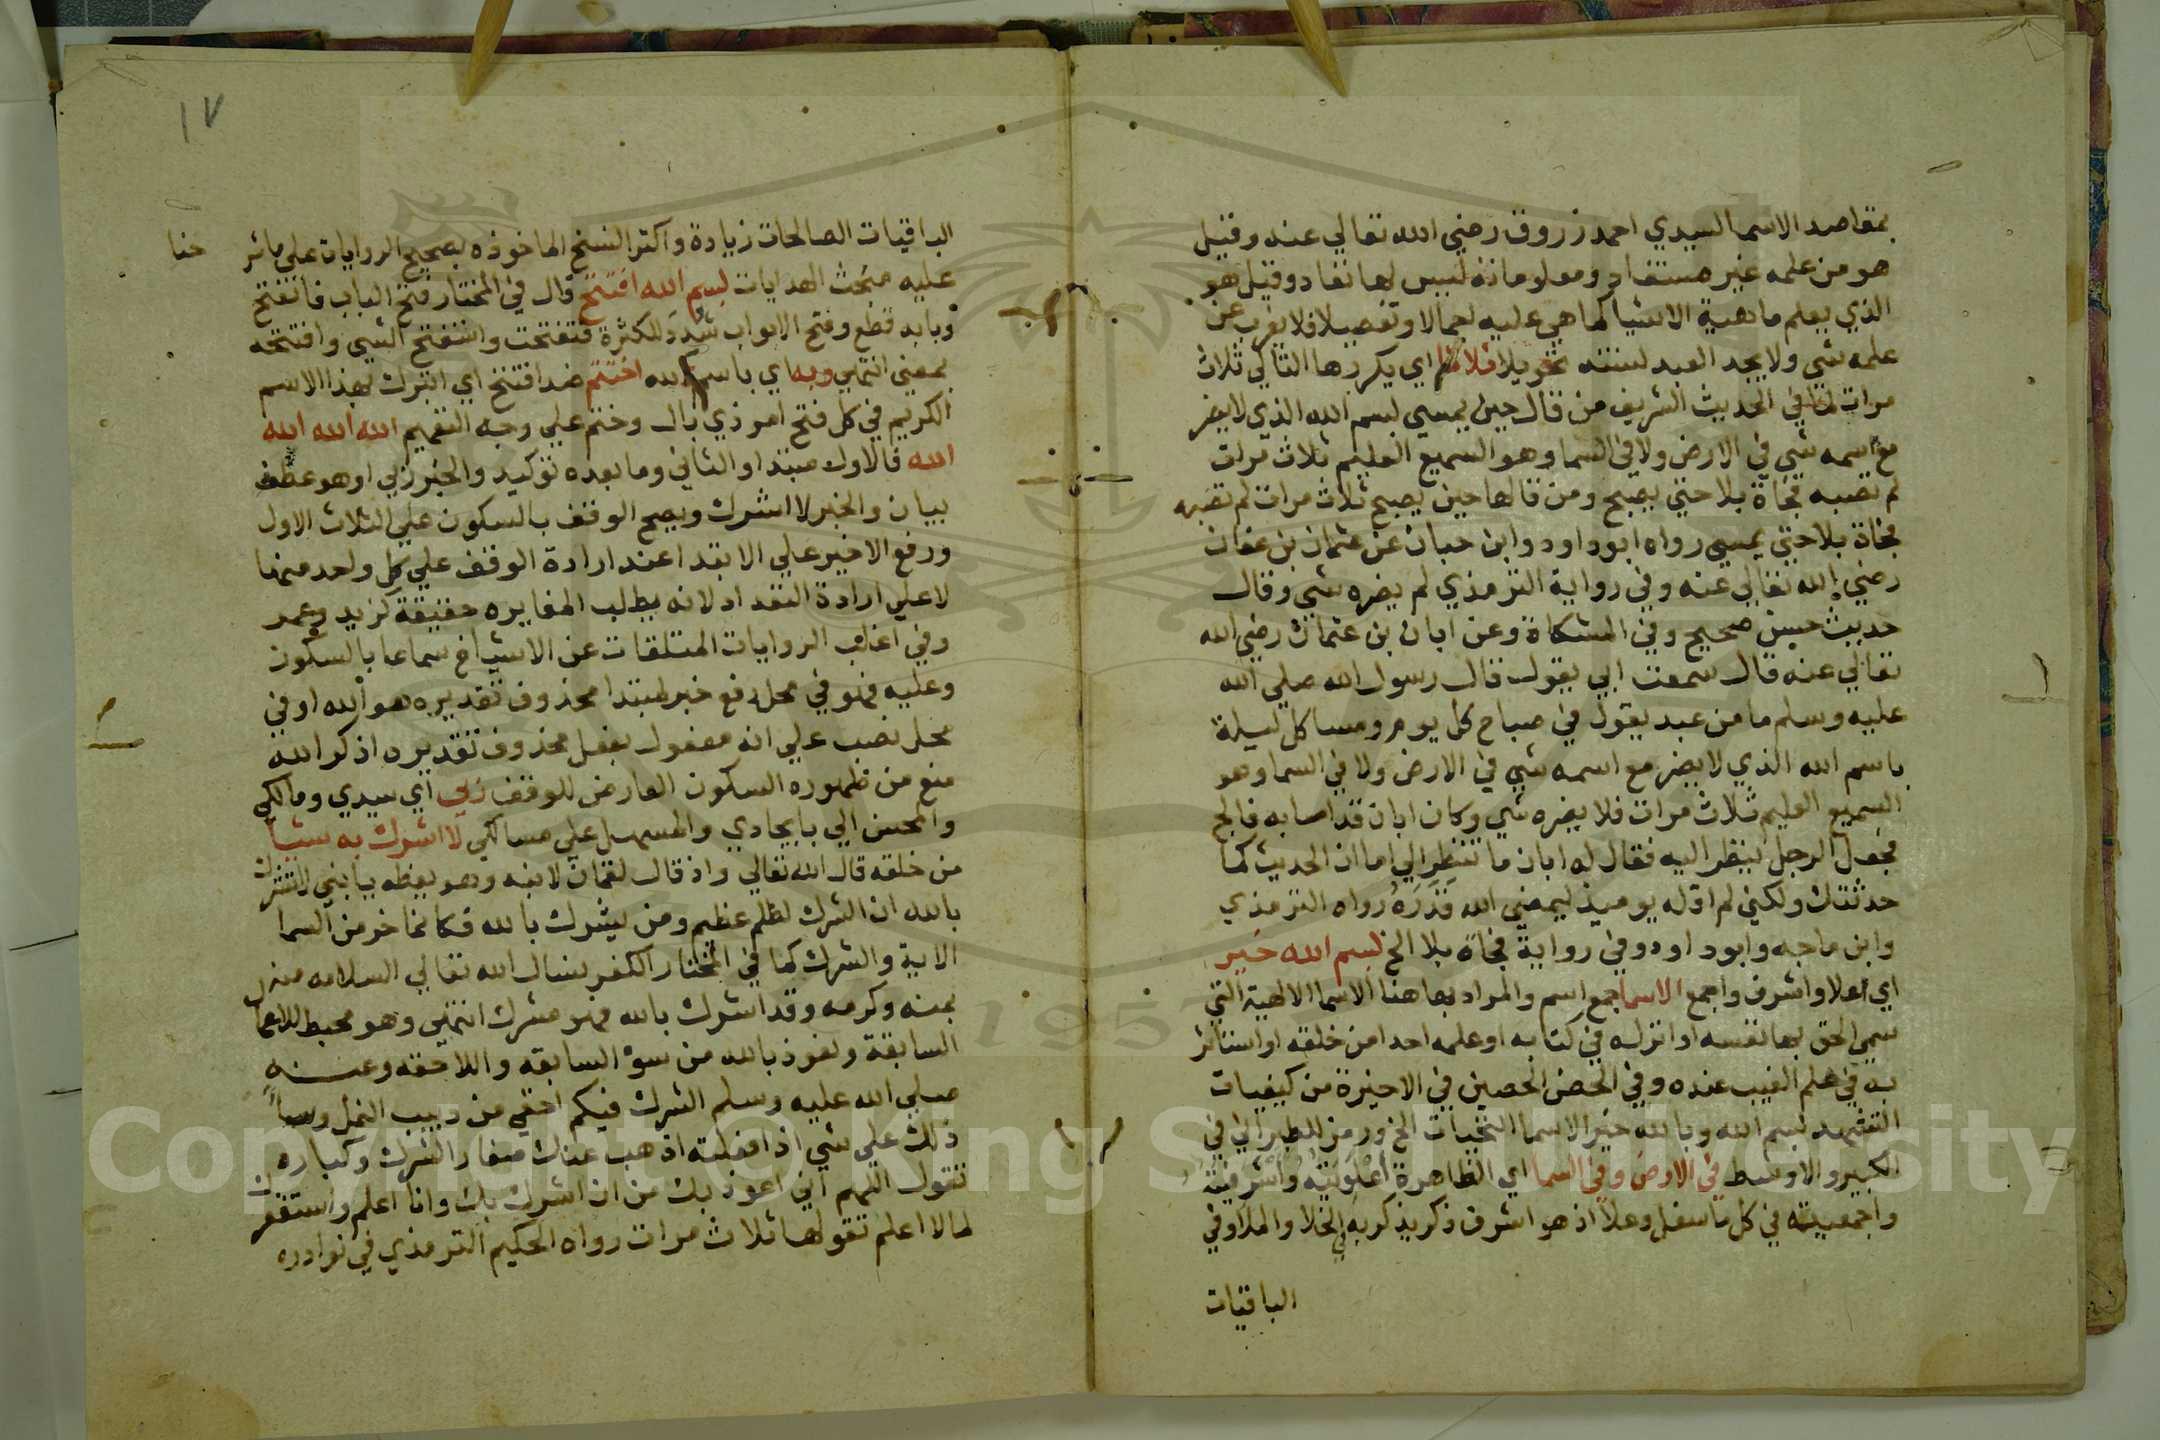 بمقاصد الاسما لسيدي احمد زروق رضي الله تعالي عنه وقيل
هو من علمه غير مستفاد ومعلوماته ليس لها نفاد وقيل هو
الذي يعلم ماهية الاشيا كما هي عليه اجمالا وتفصيلا فلا يعزب عن
علمه شي ولا يجد العبد لسنته تحويلا ثلاثا اي يكررها التالي ثلاث
مرات لما في الحديث الشريف من قال حين يمسي بسم الله الذي لا يضر
مع اسمه شي في الارض ولا في السما وهو السميع العليم ثلاث مرات
لم تصبه فجاة بلا حتي يصبح ومن قالها حين يصبح ثلاث مرات لم تصبه
فجاة بلا حتي يمسي رواه ابو داود وابن حبان عن عثمان بن عفان
رضي الله تعالي عنه وفي رواية الترمذي لم يضره شي وقال
حديث حسن صحيح وفي المشكاة وعن ابان بن عثمان رضي الله
تعالي عنه قال سمعت ابي يقول قال رسول الله صلي الله
عليه وسلم ما من عبد يقول في صباح كل يوم ومسا كل ليلة
باسم الله الذي لا يضر مع اسمه شي في الارض ولا في السما وهو
السميع العليم ثلاث مرات فلا يضره شي وكان ابان قد اصابه فالج
فجعل الرجل ينظر اليه فقال له ابان ما تنظر الي اما ان الحديث كما
حدثتك ولكني لم اقله يوميذ ليمضي الله قدره رواه الترمذي
وابن ماجه وابو داود وفي رواية فجاة بلا الخ بسم الله خير
اي اعلا واشرف واجمع الاسما جمع اسم والمراد بها هنا الاسما الالهية التي
سمي الحق بها نفسه او انزله في كتابه او علمه احدا من خلقه او استاثر
به في علم الغيب عنده وفي الحصن الحصين في الاخيرة من كيفيات
التشهد بسم الله وبالله خير الاسما التحيات الخ ورمز للطبراني في
الكبير والاوسط في الارض وفي السما اي الظاهرة اعلويته واشرفيته
واجمعيته في كل ما سفل وعلا اذ هو اشرف ذكر يذكر به في الخلا والملا وفي
الباقيات
١٧
الباقيات الصالحات زيادة واكثر النسخ الماخوذه بصحيح الروايات علي ما ثر
حنا
عليه مبحث الهدايات بسم الله افتتح قال في المختار فتح الباب فانفتح
وبابه قطع وفتح الابواب شدد للكثرة فتفتحت واستفتح الشي وافتتحه
بمعني انتهي وبه اي باسم الله اختتم ضد افتتح اي اتبرك بهذا الاسم
الكريم في كل فتح امر ذي بال وختم علي وجه التفهيم الله الله الله
الله فالاول مبتدا والثاني وما بعده توكيد والخبر ربي او هو عطف
بيان والخبر لا اشرك ويصح الوقف بالسكون علي الثلاث الاول
ورفع الاخير علي الابتدا عند ارادة الوقف علي كل واحد منها
لا علي ارادة التعداد لانه يطلب المغايره حقيقة كزيد وعمر
وفي اغلب الروايات المتلقات عن الاشياخ سماعا بالسكون
وعليه فهو في محل رفع خبر لمبتدا محذوف تقديره هو الله او في
محل نصب علي انه مفعول بفعل محذوف تقديره اذكر الله
منع من ظهوره السكون العارض للوقف ربي اي سيدي ومالكي
والمحسن الي بايجادي والمسهل علي مسالكي لا اشرك به شيا
من خلقه قال الله تعالي واذ قال لقمان لابنه وهو يعظه يا بني لا تشرك
بالله ان الشرك لظلم عظيم ومن يشرك بالله فكانما خر من السما
الاية والشرك كما في المختار الكفر نسال الله تعالي السلامه منه
بمنه وكرمه وقد اشرك بالله فهو مشرك انتهي وهو محبط للاعمال
السابقة ونعوذ بالله من سوء السابقه واللاحقه وعنه
صلي الله عليه وسلم الشرك فيكم اخفي من دبيب النمل وسا
ذلك علي شي اذا فعلته اذهب عنك صغار الشرك وكباره
تقول اللهم اني اعوذ بك من ان اشرك بك وانا اعلم واستغفرك
لما لا اعلم تقولها ثلاث مرات رواه الحكيم الترمذي في نوادره
Copyright © King Saud University
1957